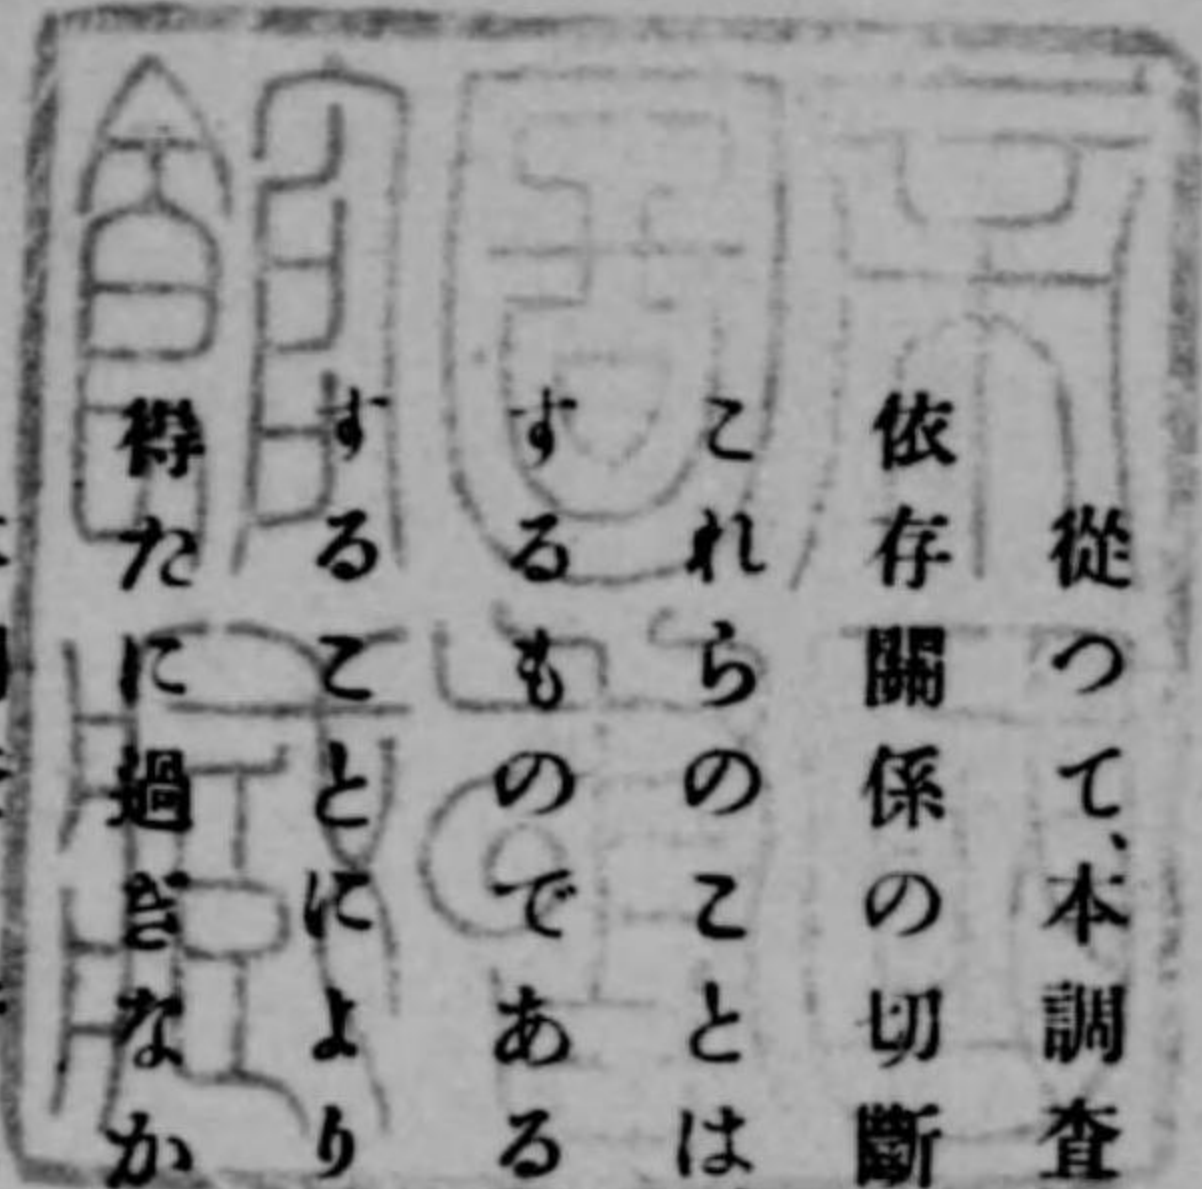 從つて、本調査
依存關係の切斷
これらのことは
するものである
することにより
得たに過ぎなか